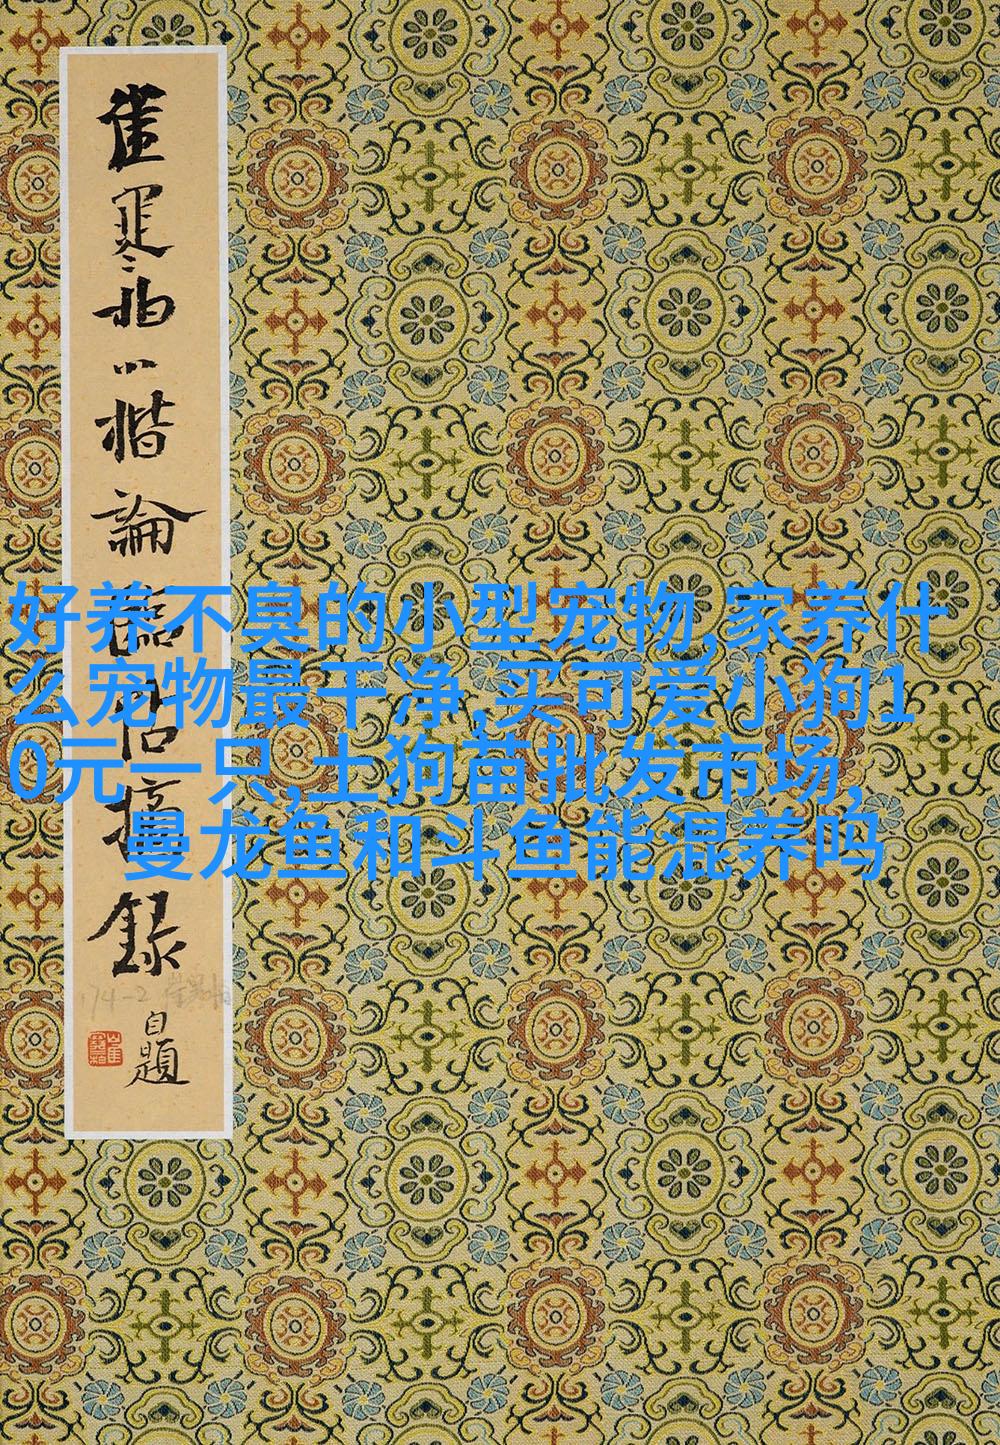 小楷論錄
自題
174-2
好养不臭的小型宠物,家养什
么宠物最干净,买可爱小狗1
0元一只,土狗苗批发市场,
曼龙鱼和斗鱼能混养吗